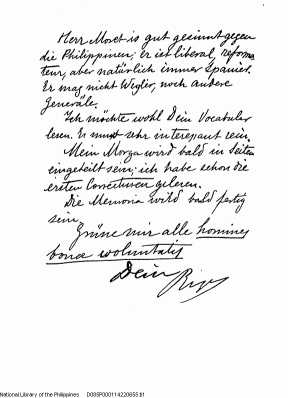 Herr Moret is gut gesinnt gegen
die Philippinen; er ist liberal, reforma-
teur, aber natürlich immer Spanier.
Er mag nicht Weyler, noch andere
Generäle.
Ich möchte wohl Dein Vocabular
lesen. Es muss sehr interessant sein.
Mein Morga wird bald in Seiten
eingeteilt sein; ich habe schon die
ersten Correcturen gelesen.
Die Memoria wird bald fertig
sein.
Grüsse mir alle homines
bonae voluntatis
Dein
National Library of the Philippines D00SP000114220855.tif